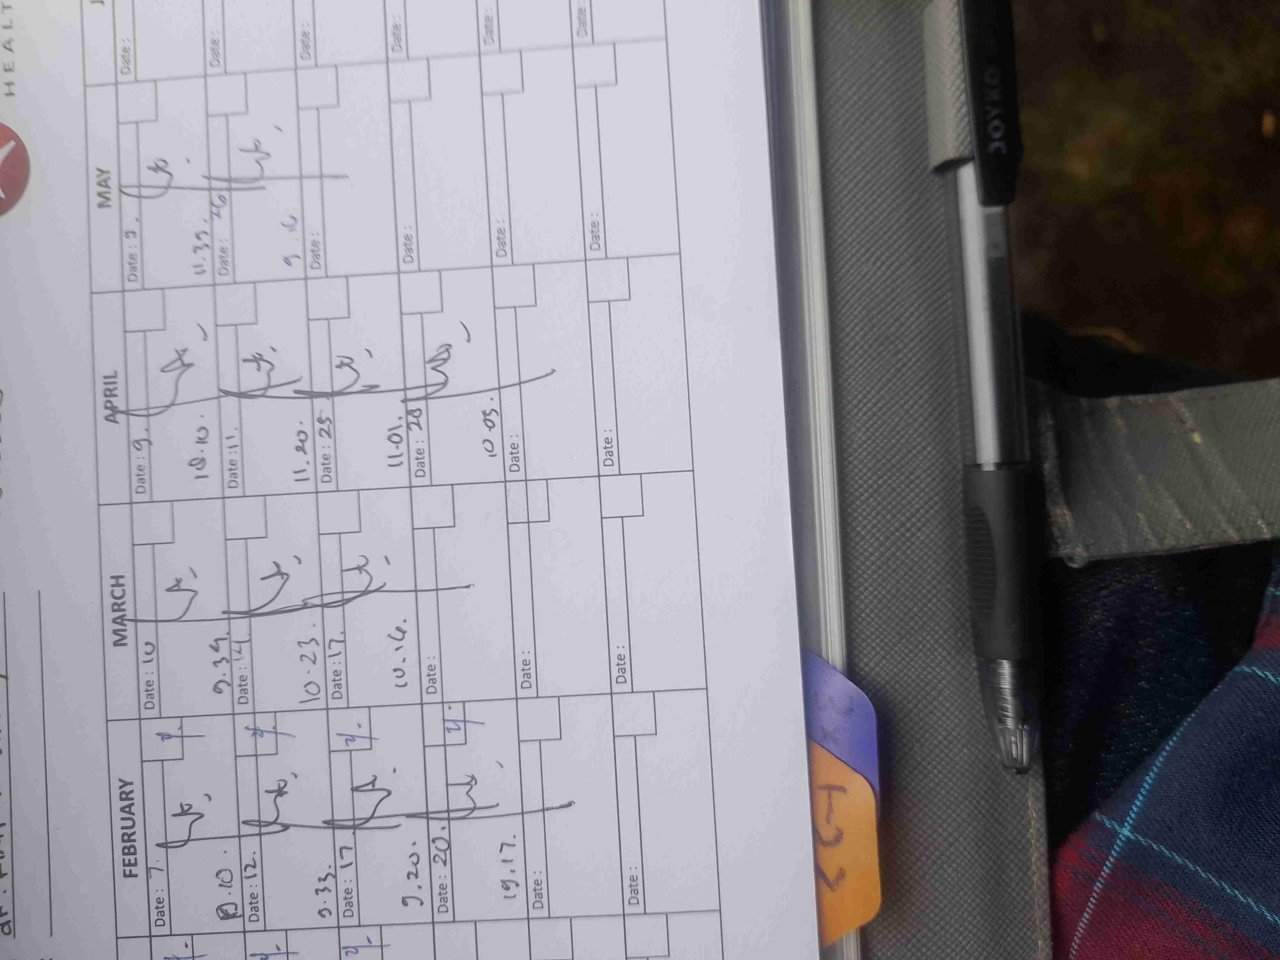 HEALT
FEBRUARY
Date : 7.
Date : 12.
9.33.
Date : 17
9.20.
Date : 20.
Date :
Date :
MARCH
Date : 10
9.34.
Date : 14
10.23.
Date : 17.
10.16.
Date :
Date :
Date :
APRIL
Date : 9.
10.10.
Date : 11.
11.20.
Date : 25
11.01.
Date : 28
10.05.
Date :
Date :
MAY
Date :
11.39.
Date : 26
9.16
Date :
Date :
Date :
Date :
Date :
Date :
Date :
Date :
Date :
Date :
JOYKO